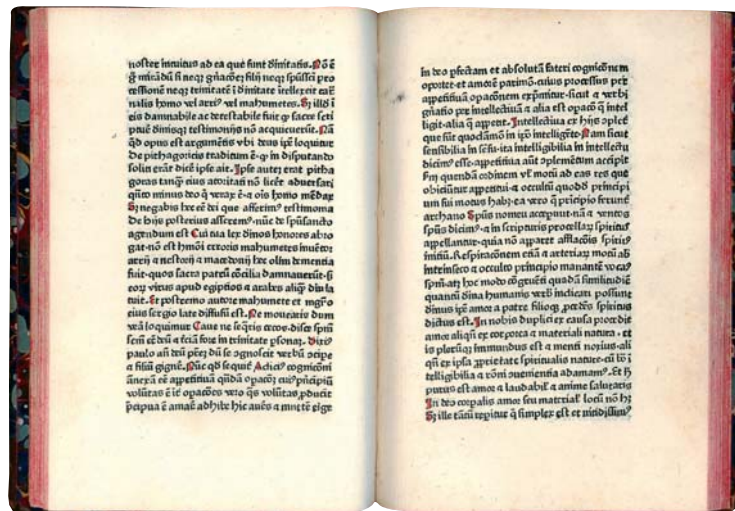 noster intuitus ad ea que sunt diuitatis. Nō ē
ꝗ mirādū si neqꝫ gñacōeꝫ filij neqꝫ spūssci pro
cessionē neqꝫ trinitatē ī diuitate ītellexit car
nalis homo vel arri⁹ vel mahumetes. Sꝫ illd ī
eis damnabile ac detestabile fuit ꝙ sacre scri
pture diuisqꝫ testimonijs nō acquieuerūt. Nā
qd opus est argumētis vbi deus ipe loquitur
De pithagoricis traditum ē ꝙ in disputando
soliti erāt dicē ipse ait. Ipse autē erat pitha
goras tanqꝫ eius auctoritati nō licēt aduersari
qūto minus deo q̄ verax ē ⁊ oīs homo mēdax
Sꝫ negabis hec eē dei que afferim⁹ testimonia
De hijs posterius asserem⁹ nūc de spūsancto
agendum est Cui tua lex diuos honores abro
gat nō est hmōi erroris mahumetes inuētor
arrij ⁊ nestorij ⁊ macedonij hec olim dementia
fuit quos sacra patrū cōcilia damnauerūt s
eoꝝ virus apud egiptios ⁊ arabes aliqn̄ diu la
tuit. Et postremo autore mahumete et mgrō
eius sergio late diffusū est. Ne mouearis dum
verā loquimur Caue ne seq̄ris cecos. disce spm
scm̄ eē deū ⁊ terciā fore in trinitate psonaꝫ. Dixi⁹
paulo añ deū prēꝫ dū se agnoscit verbū cōcipe
⁊ filiū gignē. Nūc qd seqr̄ Adict⁹ cognicōni
ānexā eē appetitiua qūdā opacōꝫ cui⁹ prīcipiū
volūtas ē īt̄ opacōes vero qs volūtas ꝓducit
p̄cipua ē amaē adhibe hic aurēs ⁊ mentē erige
In deo ꝑfectam et absolutā fateri cognicōnem
oportet et amorē parimō. cuius processus per
appetitiuā opacōnem exp̄mitur sicut ⁊ verbi
gñatio per intellectiuā ⁊ alia est opacō q̄ intel
ligit alia q̄ appetit. Intellectiua ex hijs oplet̄
que sūt quodāmō in ip̄o intelligēte. Nam sicut
sensibilia in sēsu ita intelligibilia in intellectu
dicim⁹ esse. appetitiua aūt oplementum accipit
scdm quendā ordinem vl̄ motū ad eas res que
obiciūtur appetitui ⁊ occultū quodd̄ principi
um sui motus habꝫ ea vero q̄ principio feruntˢ
archano Spūs nomen accepunt nā ⁊ ventos
spūs dicim⁹ ⁊ in scripturis procellaꝝ spiritus
appellantur quia nō apparet afflacōis spirit⁹
iniciū. Respiracōnem etiā ⁊ arteriaꝝ motū ab
intrinseco ⁊ occulto principio manantē vocat
spm atqꝫ hoc modo cōgruēti quadā similitudīe
quantū diuina humanis verb̄ indicari possunt
diuinus ip̄e amor a patre filioqꝫ ꝓcedēs spiritus
dictus est. In nobis duplici ex causa procedit
amor aliqn̄ ex corporea ⁊ materiali natura. et
is plerūqꝫ immundus est ⁊ menti noxius. ali
qn̄ ex ipsa ꝓprietate spiritualis nature cū bōa ī
telligibilia ⁊ rōni ꝯuenientia adamam⁹. Et hic
purus est amor ⁊ laudabil̄ ⁊ anime salutaris
In deo corpalis amor seu material̄ locū nō hꝫ
Sꝫ ille tātū repitur q̄ simplex est et nitidissim⁹